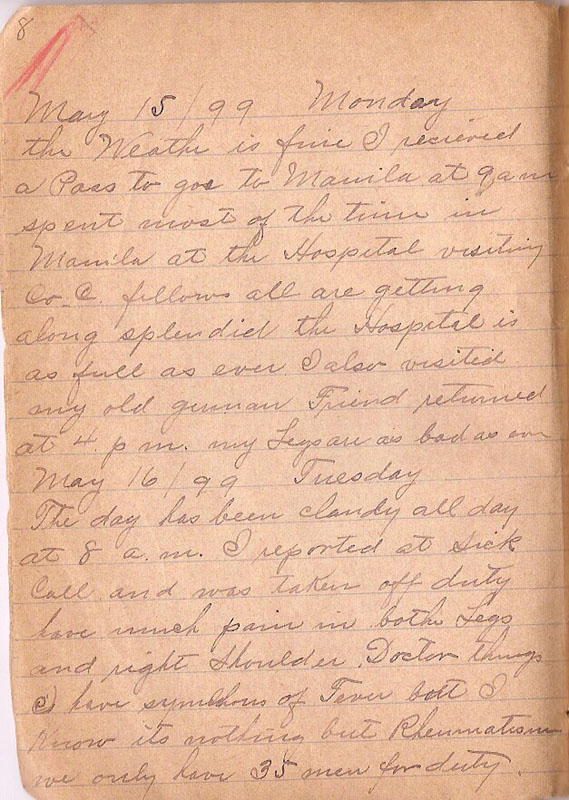 8
May 15/99 Monday
the Weathe is fine I recieved
a Pass to goe to Manila at 9 a m
spent most of the time in
Manila at the Hospital visiting
Co. C. fellows all are getting
along splendid the Hospital is
as full as ever I also visited
my old german Friend returned
at 4 p m. my Legs are as bad as ever
May 16/99 Tuesday
The day has been cloudy all day
at 8 a.m. I reported at Sick
Call and was taken off duty
have much pain in bothe Legs
and right Shoulder. Doctor things
I have symthons of Fever but I
Know its nothing but Rheumatism
we only have 35 men for duty.